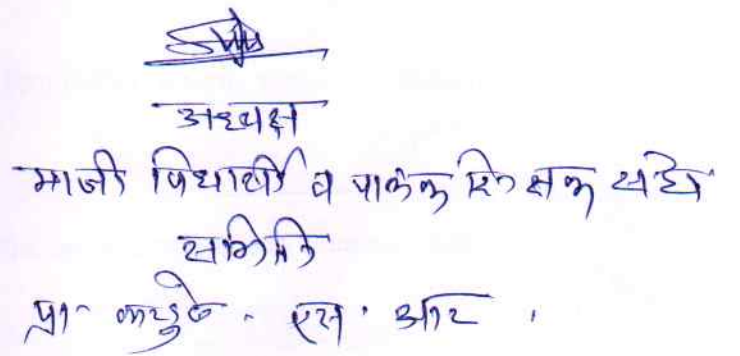 अध्यक्ष
माजी विद्यार्थी व पालक शिक्षक संघ
समिती
प्रा. एस. आर.